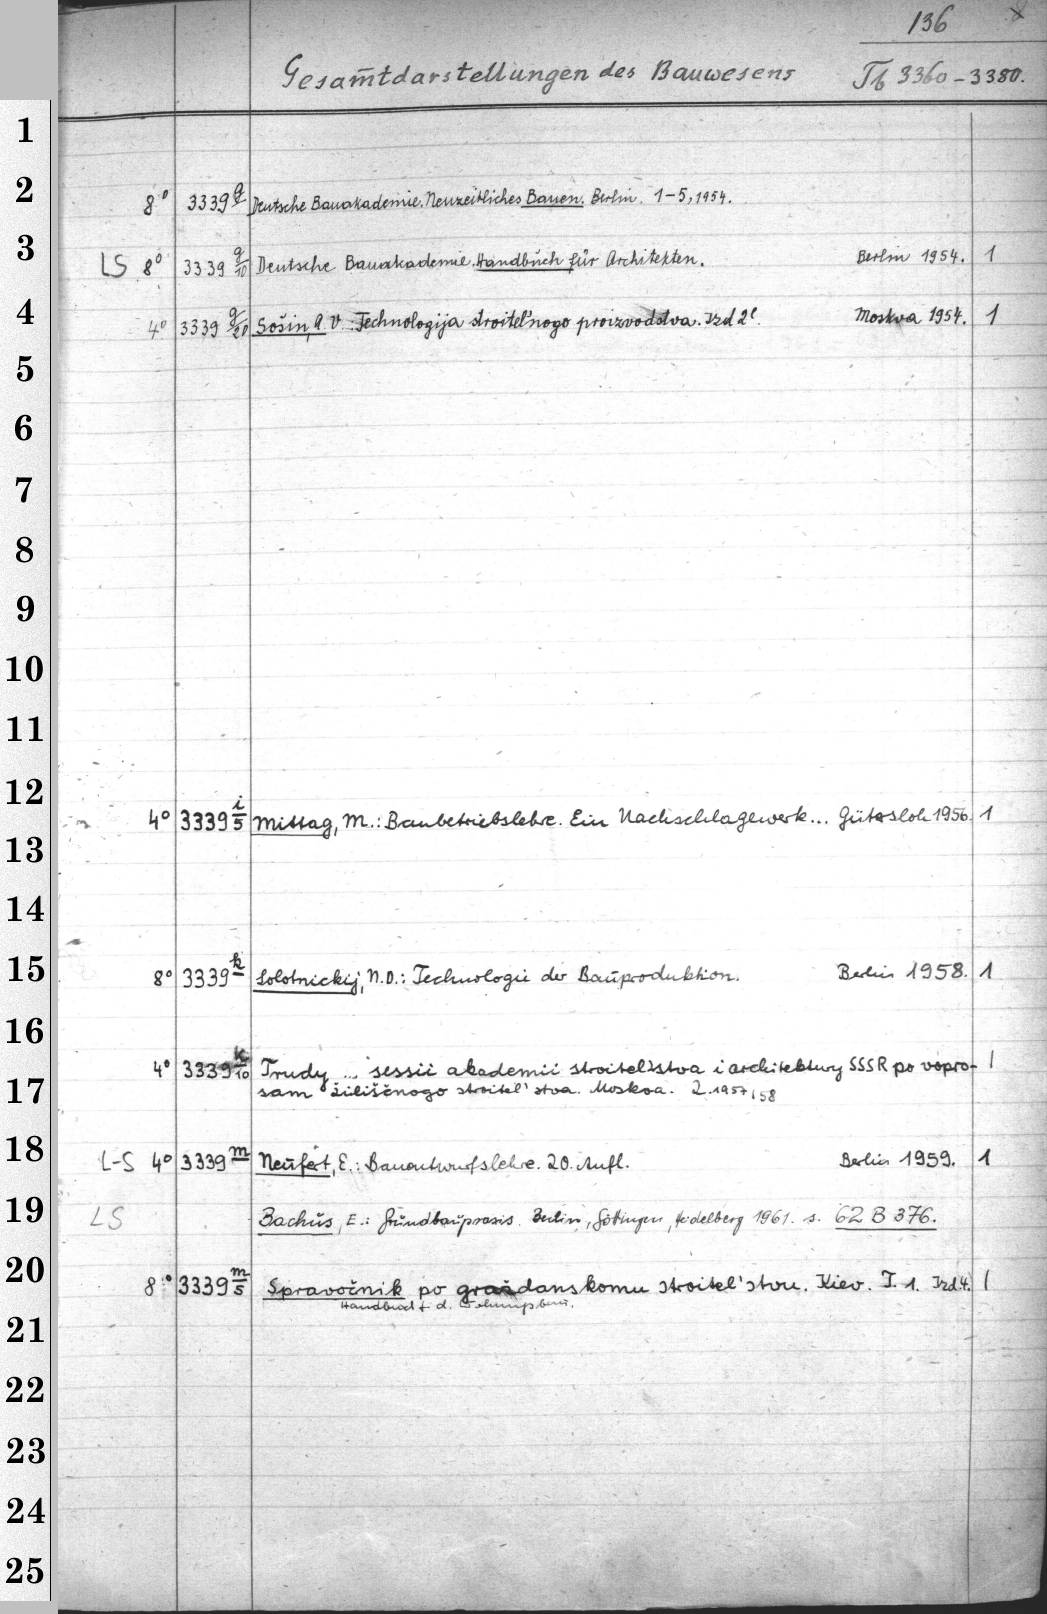 136
Gesamtdarstellungen des Bauwesens Tb 3360-3380.
1
2 8° 3339 g Deutsche Bauakademie. Neuzeitliches Bauen. Berlin. 1-5, 1954.
3 LS 8° 3339 g/10 Deutsche Bauakademie. Handbuch für Architekten. Berlin 1954. 1
4 4° 3339 g/20 Sošin, A. V.: Technologija stroitel'nogo proizvodstva. Izd 2e. Moskva 1954. 1
5
6
7
8
9
10
11
12 4° 3339 i/5 Mittag, M.: Baubetriebslehre. Ein Nachschlagewerk... Gütersloh 1956. 1
13
14
15 8° 3339 k Solotnickij, N.D.: Technologie der Bauproduktion. Berlin 1958. 1
16
4° 3339 k/10 Trudy ... sessii akademii stroitel'stva i architektury SSSR po vopro- 1
17 sam žiliščnogo stroitel'stva. Moskva. 2.1957/58
18 L-S 4° 3339 m Neufert, E.: Bauentwurfslehre. 20. Aufl. Berlin 1959. 1
19 LS Bachus, E.: Grundbaupraxis. Berlin, Göttingen, Heidelberg 1961. s. 62 B 376.
20 8° 3339 m/5 Spravočnik po graždanskomu stroitel'stvu. Kiev. T. 1. Izd.4. 1
Handbuch f. d.
21
22
23
24
25